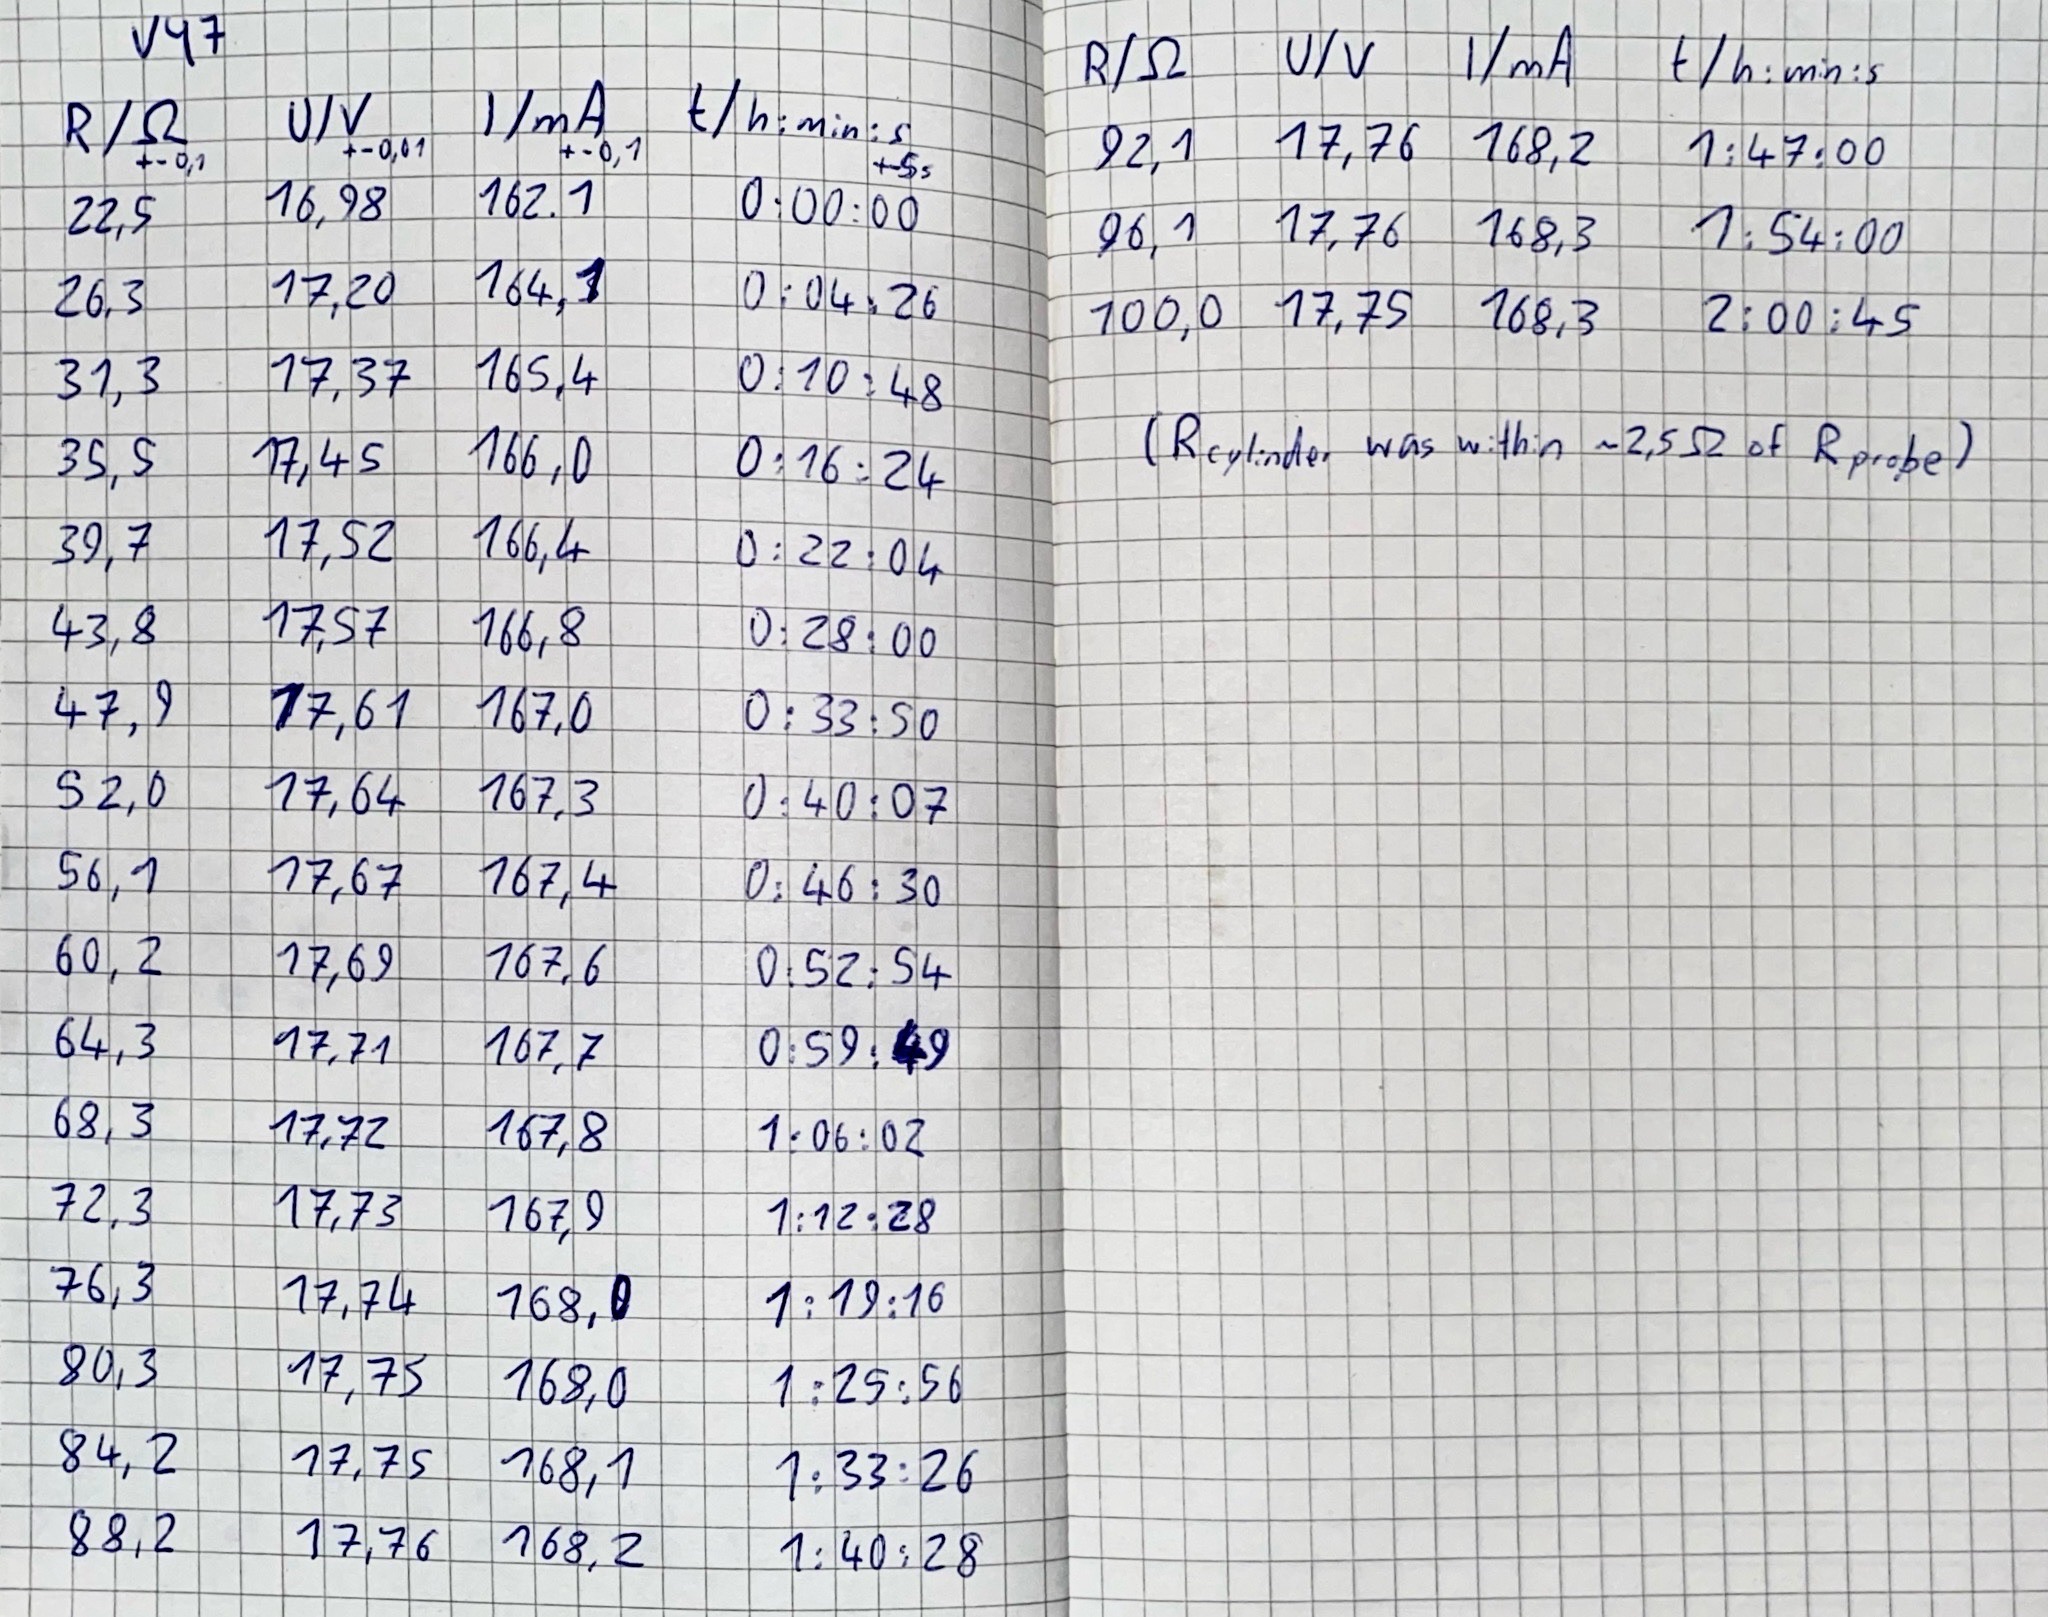 V47
R/Ω U/V I/mA t/h:min:s
+-0,1 +-0,01 +-0,1 +-5s
22,5 16,98 162.1 0:00:00
26,3 17,20 164,1 0:04:26
31,3 17,37 165,4 0:10:48
35,5 17,45 166,0 0:16:24
39,7 17,52 166,4 0:22:04
43,8 17,57 166,8 0:28:00
47,9 17,61 167,0 0:33:50
52,0 17,64 167,3 0:40:07
56,1 17,67 167,4 0:46:30
60,2 17,69 167,6 0:52:54
64,3 17,71 167,7 0:59:49
68,3 17,72 167,8 1:06:02
72,3 17,73 167,9 1:12:28
76,3 17,74 168,0 1:19:16
80,3 17,75 168,0 1:25:56
84,2 17,75 168,1 1:33:26
88,2 17,76 168,2 1:40:28
R/Ω U/V I/mA t/h:min:s
92,1 17,76 168,2 1:47:00
96,1 17,76 168,3 1:54:00
100,0 17,75 168,3 2:00:45
(Rcylinder was within ~2,5Ω of Rprobe)